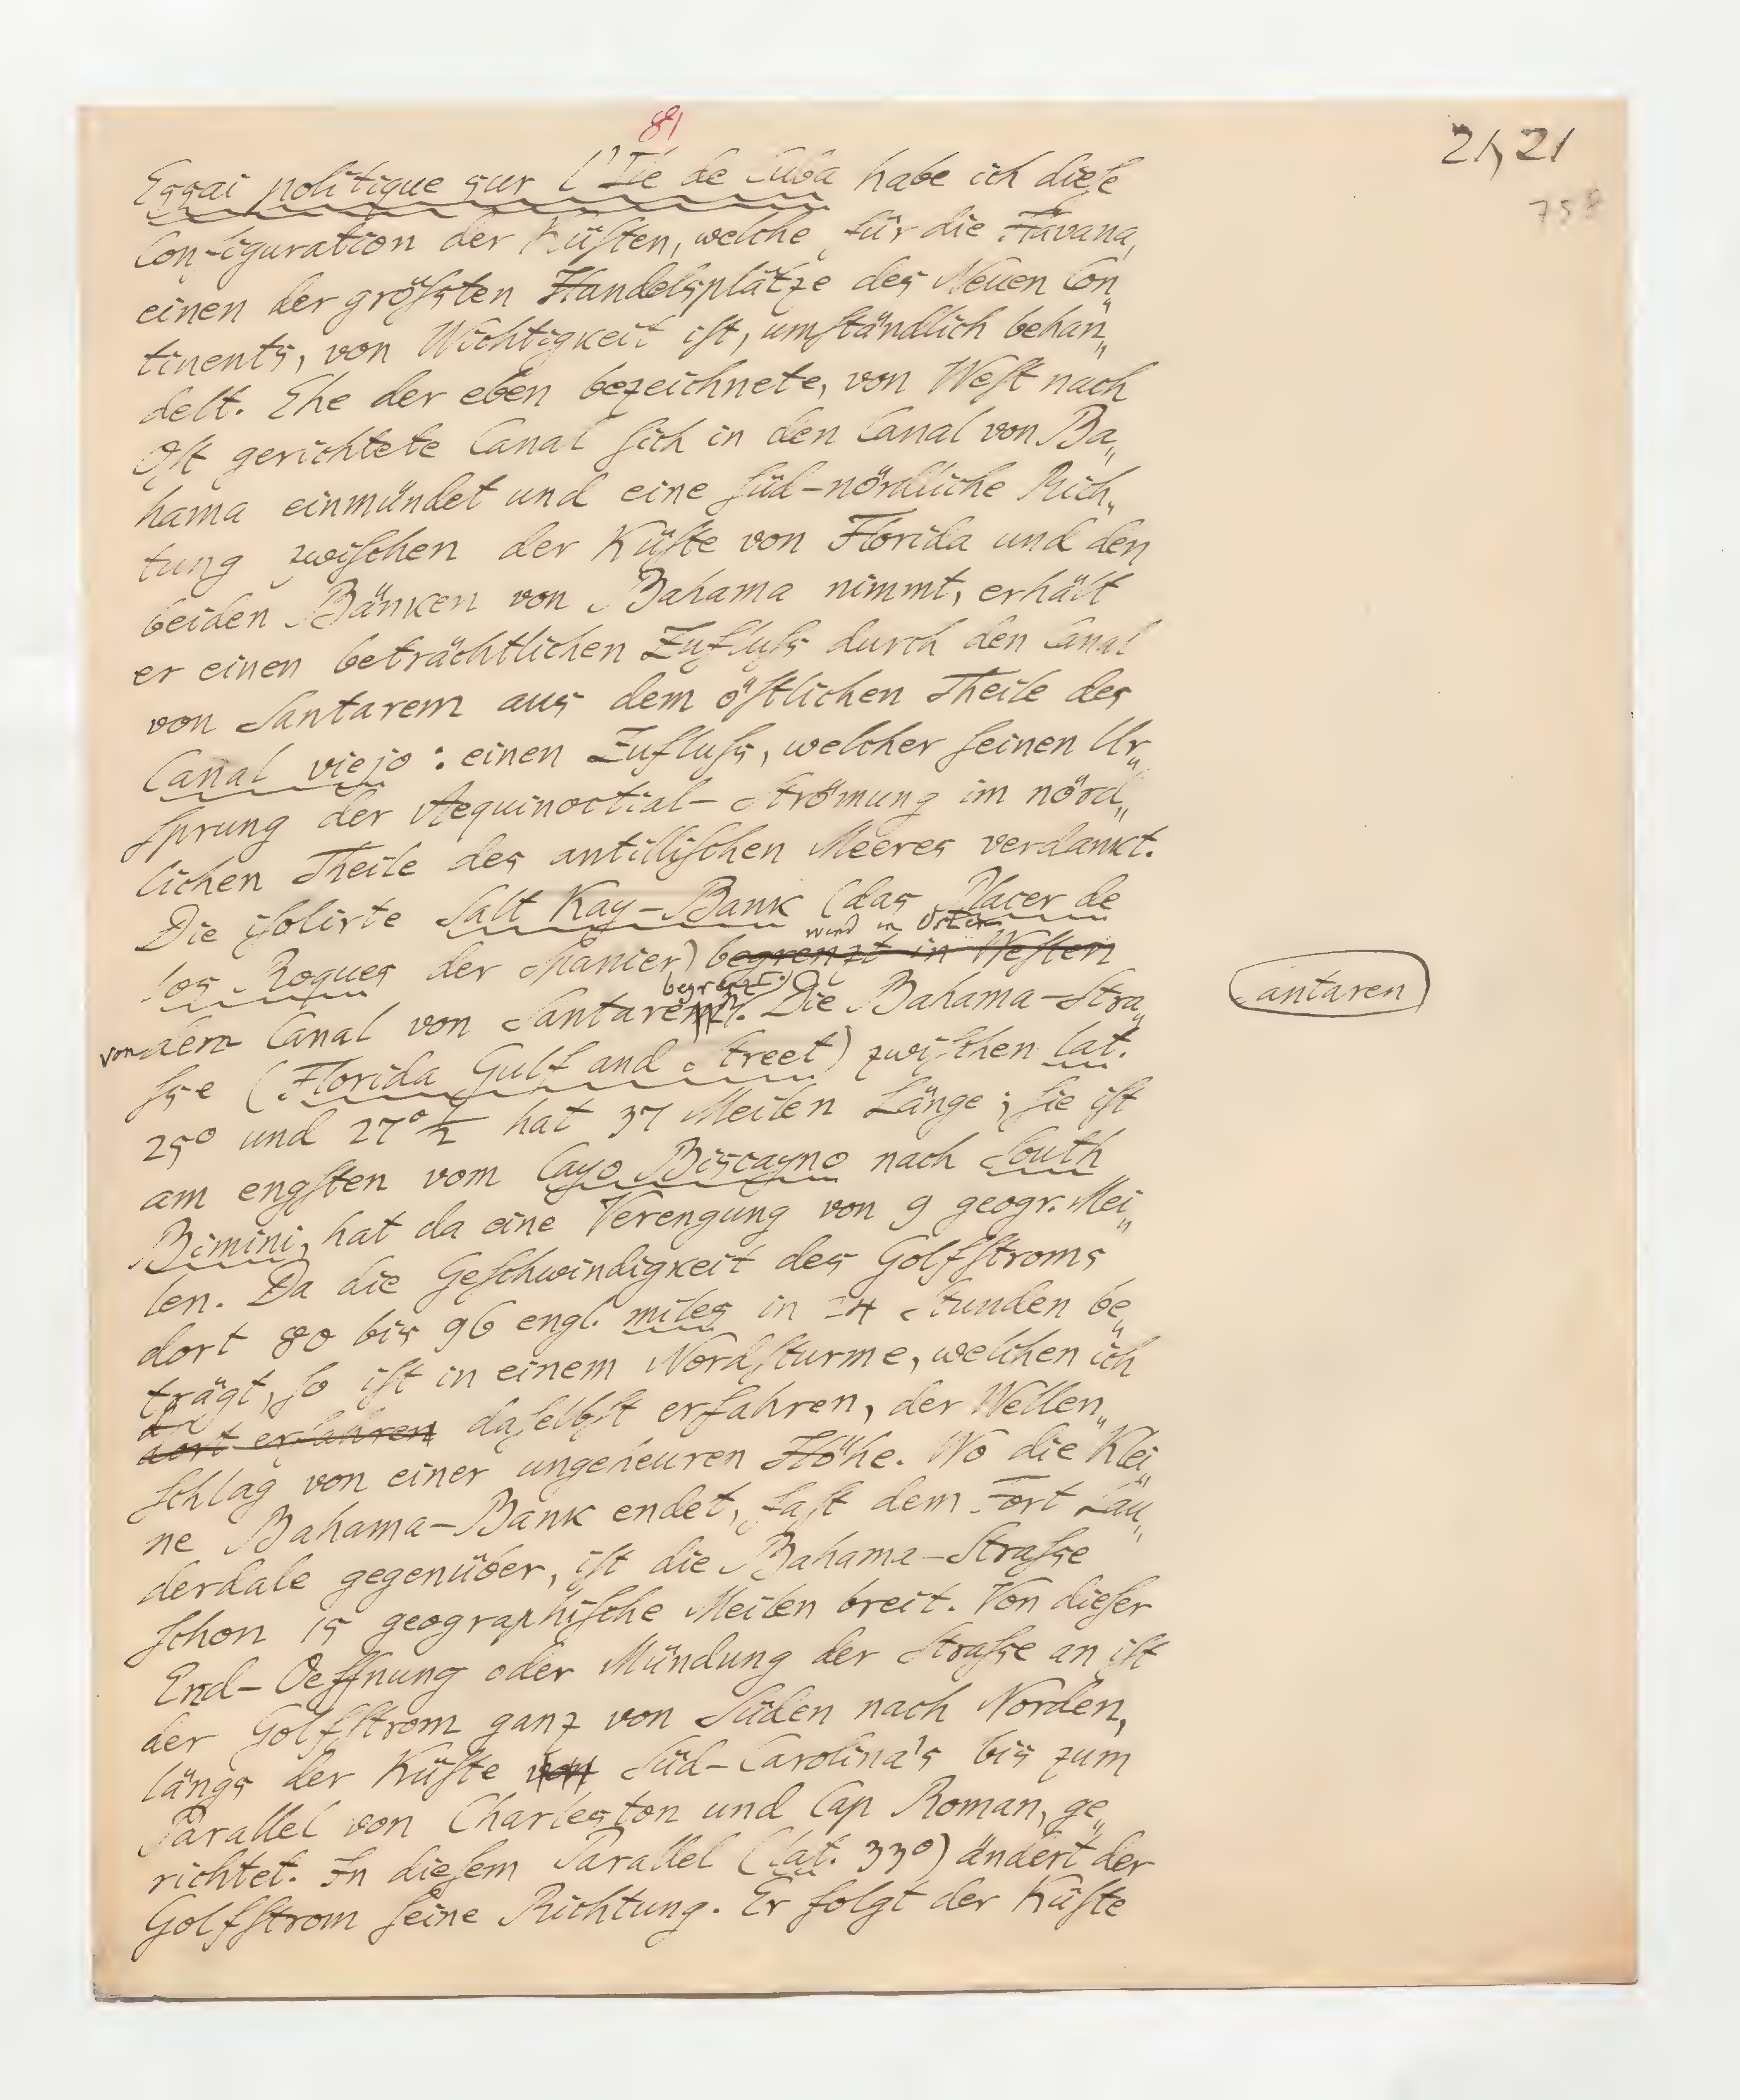 81
21, 21
758
Essai politique sur l'Ile de Cuba habe ich dieſe
Configuration der Küſten, welche für die Havana,
einen der gröſsten Handelsplätze des Neuen Con„
tinents, von Wichtigkeit iſt, umſtändlich behan„
delt. Ehe der eben bezeichnete, von Weſt nach
Oſt gerichtete Canal ſich in den Canal von Ba„
hama einmündet und eine ſüd-nördliche Rich„
tung zwiſchen der Küſte von Florida und den
beiden Bänken von Bahama nimmt, erhält
er einen beträchtlichen Zufluſs durch den Canal
von Santarem aus dem öſtlichen Theile des
Canal viejo: einen Zufluſs, welcher ſeinen Ur„
ſprung der Aequinoctial-Strömung im nörd„
lichen Theile des antilliſchen Meeres verdankt.
Die iſolirte Salt Kay-Bank (das Placer de
wird in Osten
los Roques der Spanier) begrenzt in Weſten
begrenzt
von dem Canal von Santaren. Die Bahama-Stra„
antaren
ſse (Florida Gulf and Street) zwiſchen lat.
25° und 27°½ hat 37 Meilen Länge; ſie iſt
am engſten vom Cayo Biscayno nach South
Bimini, hat da eine Verengung von 9 geogr. Mei„
len. Da die Geſchwindigkeit des Golfſtroms
dort 80 bis 96 engl. miles in 24 Stunden be„
trägt, ſo iſt in einem Nordſturme, welchen ich
dort erfahren daſelbſt erfahren, der Wellen„
ſchlag von einer ungeheuren Höhe. Wo die Klei„
ne Bahama-Bank endet, faſt dem Fort Lau„
derdale gegenüber, iſt die Bahama-Straſse
ſchon 15 geographiſche Meilen breit. Von dieſer
End-Oeffnung oder Mündung der Straſse an iſt
der Golfſtrom ganz von Süden nach Norden,
längs der Küſte von Süd-Carolina's bis zum
Parallel von Charleston und Cap Roman, ge„
richtet. In dieſem Parallel (lat. 33°) ändert der
Golfſtrom ſeine Richtung. Er folgt der Küſte